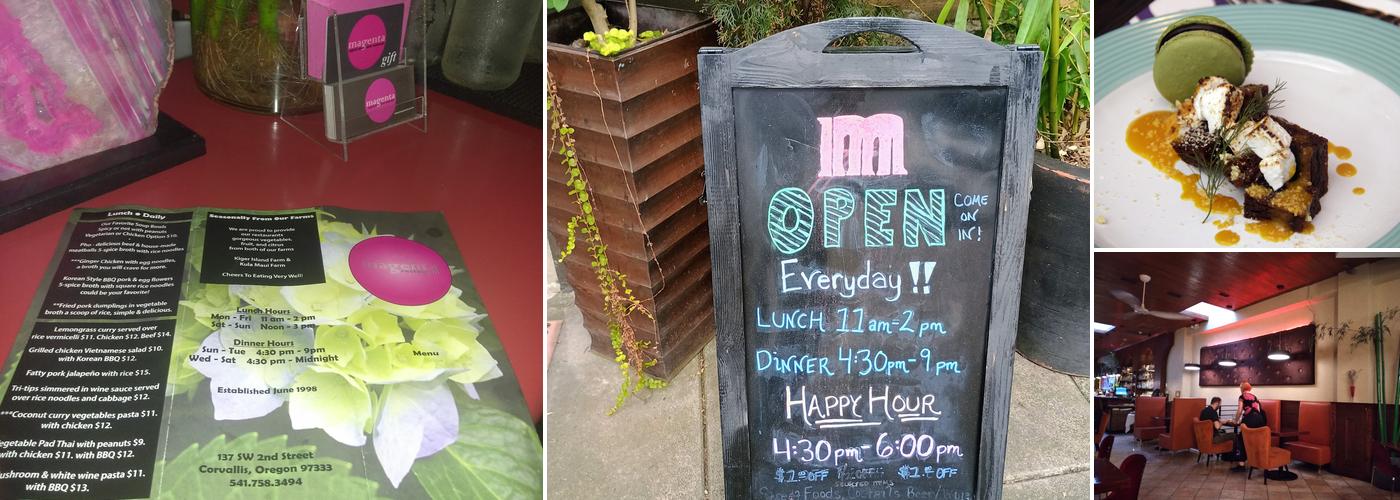 magenta
gift
magenta
Lunch • Daily
Our Favorite Soup Bowls
Spicy or not with peanuts
Vegetarian or Chicken Option $10.
Pho - delicious beef & house-made
meatballs 5-spice broth with rice noodles
***Ginger Chicken with egg noodles,
a broth you will crave for more.
Korean Style BBQ pork & egg flowers
5-spice broth with square rice noodles
could be your favorite!
**Fried pork dumplings in vegetable
broth a scoop of rice, simple & delicious.
Lemongrass curry served over
rice vermicelli $11. Chicken $12. Beef $14.
Grilled chicken Vietnamese salad $10.
with Korean BBQ $12.
Fatty pork jalapeño with rice $15.
Tri-tips simmered in wine sauce served
over rice noodles and cabbage $12.
***Coconut curry vegetables pasta $11.
with chicken $12.
egetable Pad Thai with peanuts $9.
with chicken $11. with BBQ $12.
ushroom & white wine pasta $11.
with BBQ $13.
Seasonally From Our Farms
We are proud to provide
our restaurants
gorgeous vegetables,
fruit, and citrus
from both of our farms
Kiger Island Farm &
Kula Maui Farm
Cheers To Eating Very Well!
magenta
Lunch Hours
Mon - Fri 11 am - 2 pm
Sat - Sun Noon - 3 pm
Dinner Hours
Sun - Tue 4:30 pm - 9pm
Wed - Sat 4:30 pm - Midnight
Menu
Established June 1998
137 SW 2nd Street
Corvallis, Oregon 97333
541.758.3494
m
OPEN
COME
ON
IN!
Everyday!!
LUNCH 11am-2pm
DINNER 4:30pm-9pm
HAPPY HOUR
4:30pm-6:00pm
$1.00 OFF $1.00 OFF
SELECTED ITEMS
Foods, Cocktails Beer/